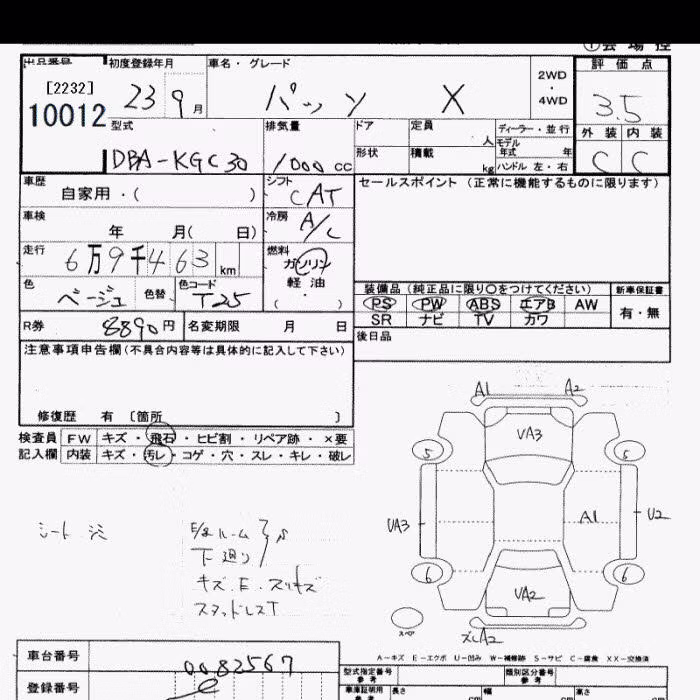 出品番号 初度登録年月 車名・グレード 2WD・4WD 評価点
[2232] 23 9月 パッソ X 3.5
10012
型式 排気量 ドア 定員 人 ディーラー・並行 外装 内装
DBA-KGC30 1000cc 形状 積載 kg モデル年式 年 C C
ハンドル 左・右
車歴 シフト セールスポイント (正常に機能するものに限ります)
自家用・( ) CAT
車検 冷房
年 月( 日) A/C
走行 燃料
6万9千463km ガソリン
軽油
色 色替 色コード ・( )
ベージュ T25
装備品 (純正品に限り○をつけてください) 新車保証書
PS PW ABS エアB AW 有・無
SR ナビ TV カワ
R券 8890円 名変期限 月 日
後日品
注意事項申告欄(不具合内容等は具体的に記入して下さい)
修復歴 有 〔箇所 〕
検査員 FW キズ・飛石・ヒビ割・リペア跡・×要
記入欄 内装 キズ・汚レ・コゲ・穴・スレ・キレ・破レ
A1 A2
VA3
5 5
UA3 A1 U2
6 6
VA2
スペア
ズレA2
シート
E/gルーム
下廻り
キズ・E・スリキズ
スタッドレスT
A-キズ E-エクボ U-凹み W-補修跡 S-サビ C-腐食 XX-交換済
車台番号 0082567
型式指定番号 類別区分番号
参考 参考
登録番号
車庫証明用 長さ 幅 高さ